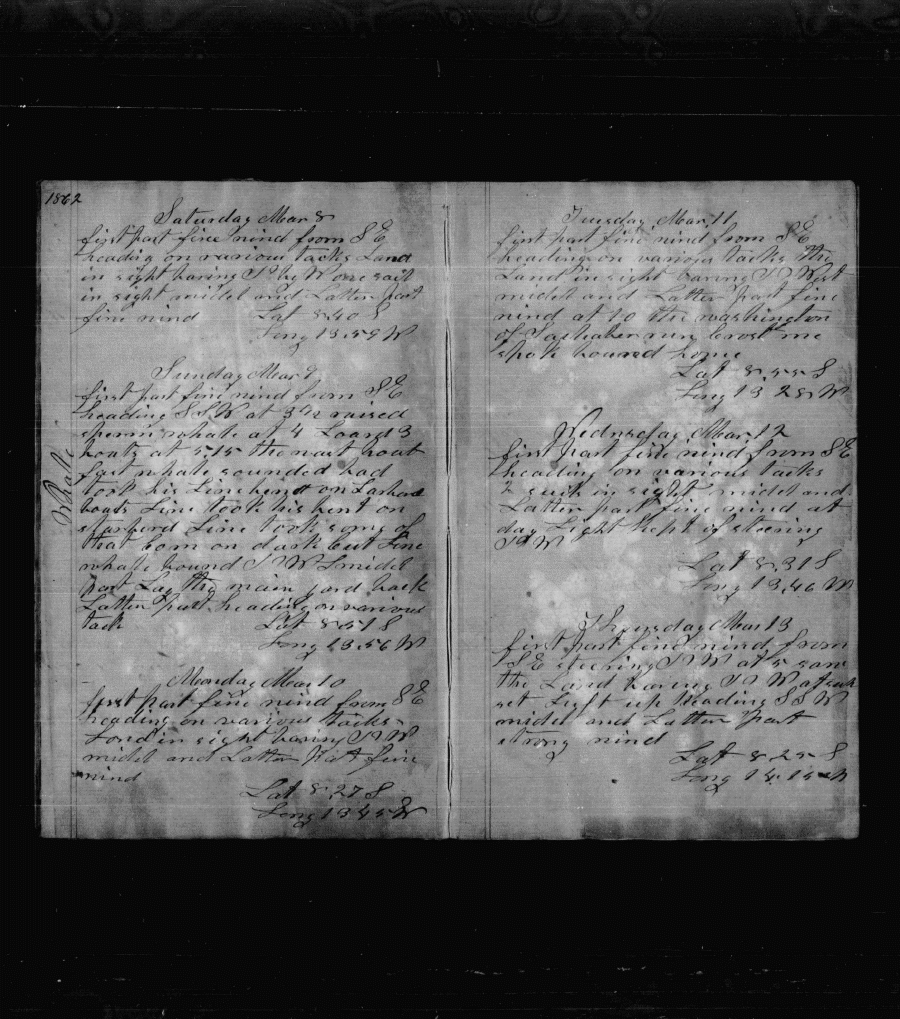 1862
Saturday Mar 8
first part fine wind from S E
heading on various tacks Land
in sight baring S by W one sail
in sight midel and Latter part
fine wind Lat 8.40 S
Long 13.59 W
Sunday Mar 9
first part fine wind from S E
heading S S W at 3 1/2 raised
sperm whale at 4 Loard 3
boats at 5.15 the wast boat
fast whale sounded had
took his Line bent on Larbord
boats Line took his bent on
starbord Line took some of
that com on dark cut Line
whale bound S W midel
part Lay the main yard back
Latter part heading on various
tack Lat 8.51 S
Long 13.56 W
Whale
Monday Mar 10
first part fine wind from S E
heading on various tacks
Land in sight baring S W
midel and Latter part fine
wind
Lat 8.27 S
Long 13.45 W
Tuesday Mar 11
first part fine wind from S E
heading on various tacks the
Land in sight baring S West
midel and Latter part fine
wind at 10 the washington
of run crost me
spoke bound home
Lat 8.55 S
Long 13 28 W
Wednsday Mar 12
first part fine wind from S E
heading on various tacks
2 sail in sight midel and
Latter part fine wind at
day Light kept of steering
S W
Lat 8.31 S
Long 13.46 W
Thoursday Mar 13
first part find wind from
S E steering S W at 5 saw
the Land baring S S W at
set Light up heading S S W
midel and Latter part
strong wind
Lat 8.25 S
Long 14.15 W